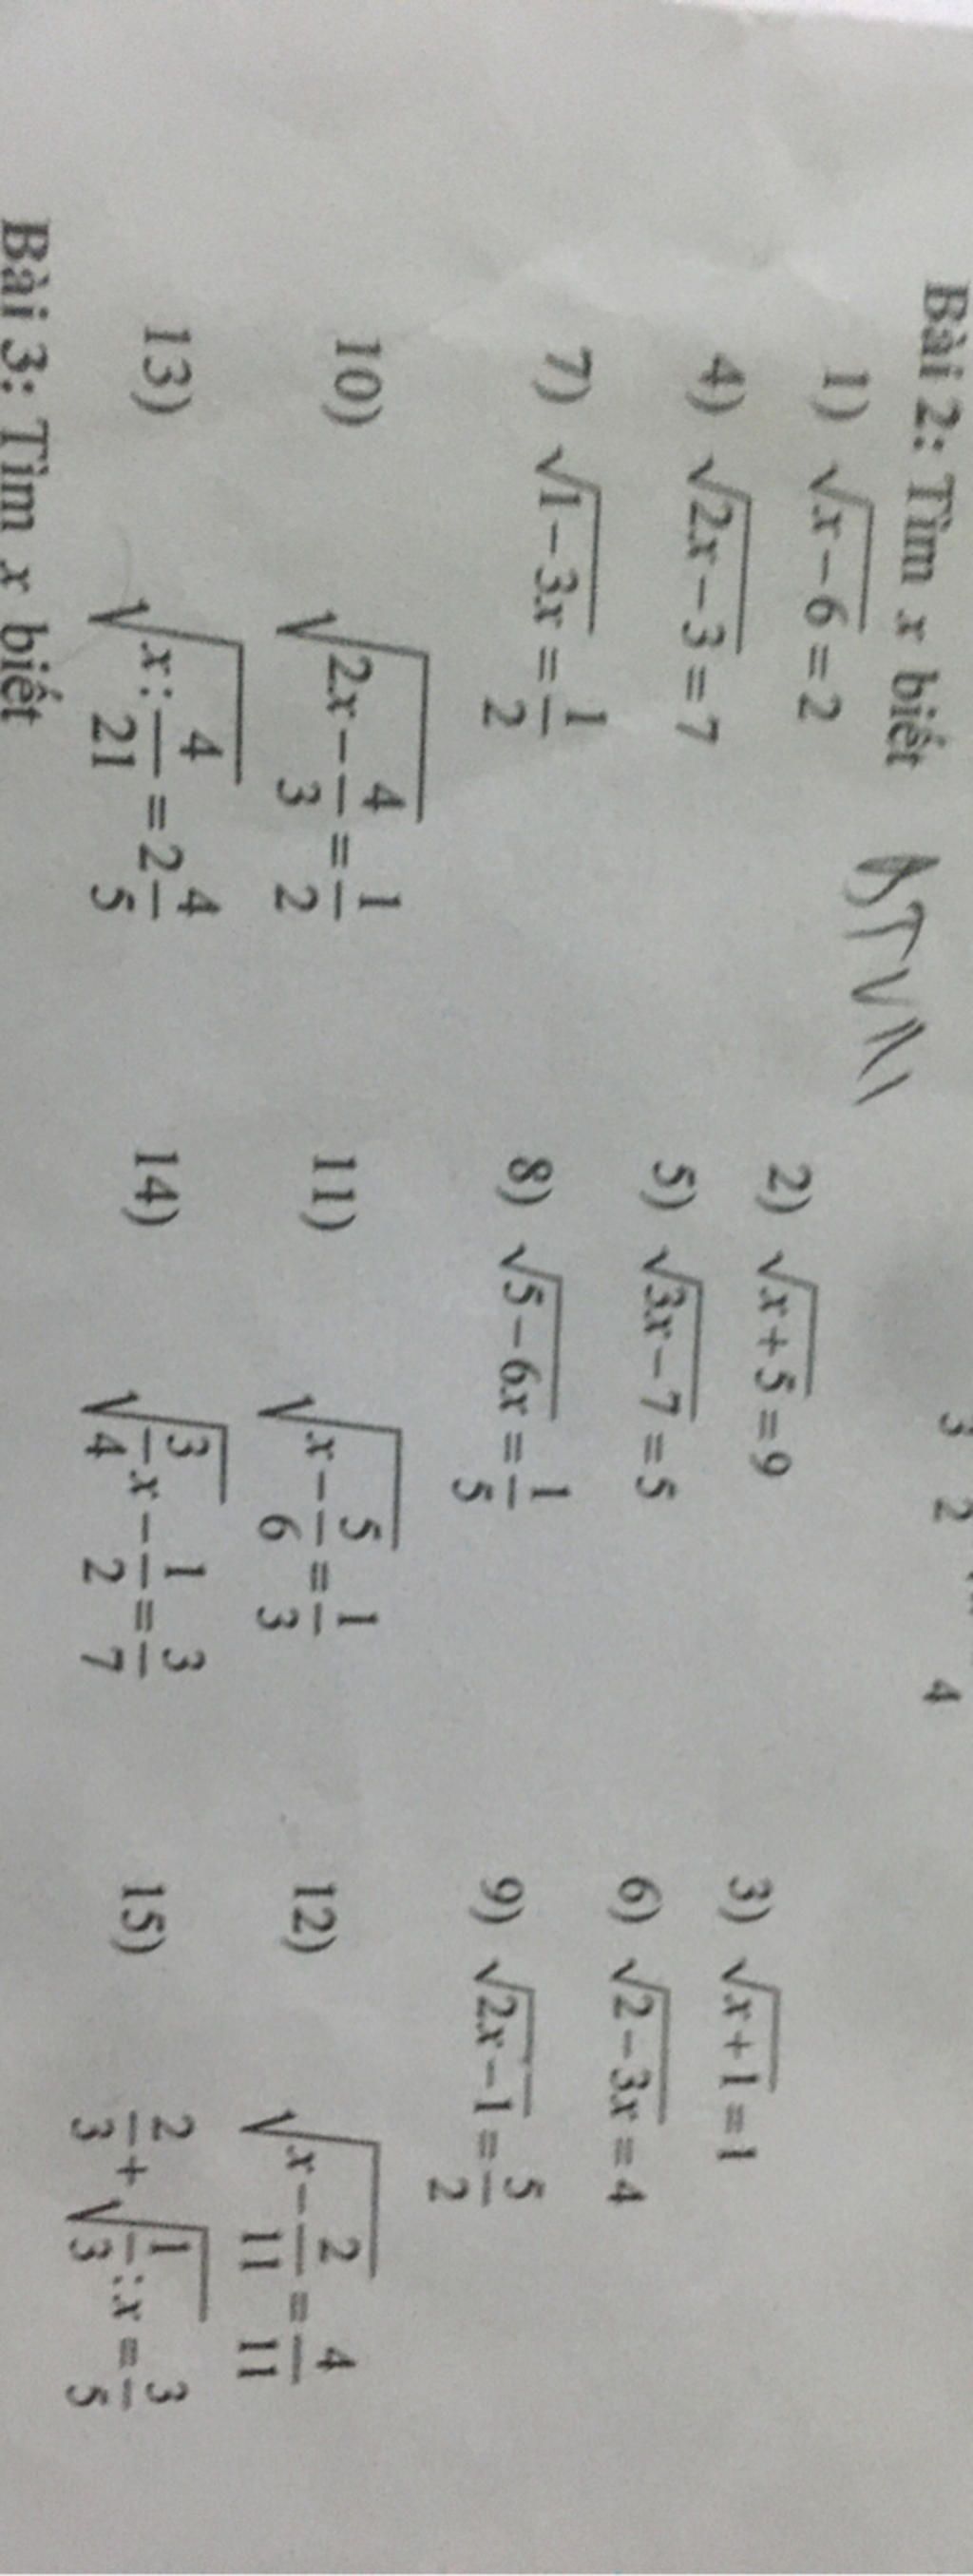 3 2 4
Bài 2: Tìm x biết
1) √(x−6) = 2 2) √(x+5) = 9 3) √(x+1) = 1
4) √(2x−3) = 7 5) √(3x−7) = 5 6) √(2−3x) = 4
7) √(1−3x) = 1/2 8) √(5−6x) = 1/5 9) √(2x−1) = 5/2
10) √(2x − 4/3) = 1/2 11) √(x − 5/6) = 1/3 12) √(x − 2/11) = 4/11
13) √(x : 4/21) = 2 4/5 14) √(3/4 x) − 1/2 = 3/7 15) 2/3 + √(1/3 : x) = 3/5
Bài 3: Tìm x biết